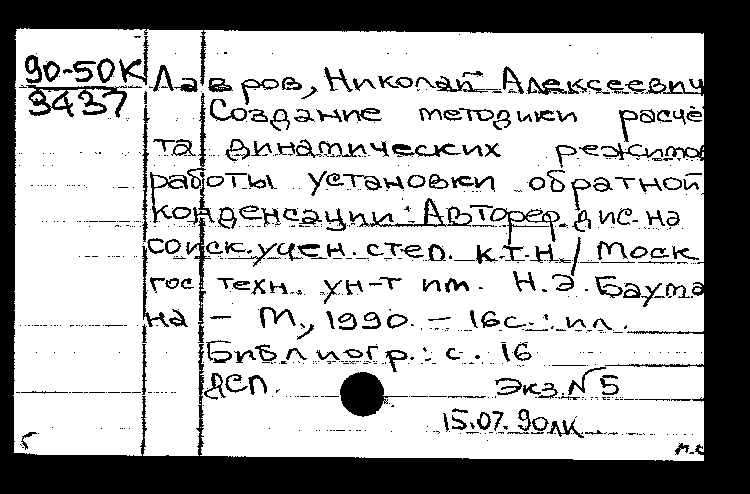 90-50К
3437
Лавров, Николай Алексеевич
Создание методики расчё
та динамических режимов
работы установки обратной
конденсации: Автореф. дис. на
соиск. учен. степ. к.т.н. / Моск
гос техн. ун-т им. Н.Э. Баума
на - М., 1990. - 16с.: ил.
Библиогр.: с. 16
ДСП. Экз. N 5
15.07.90